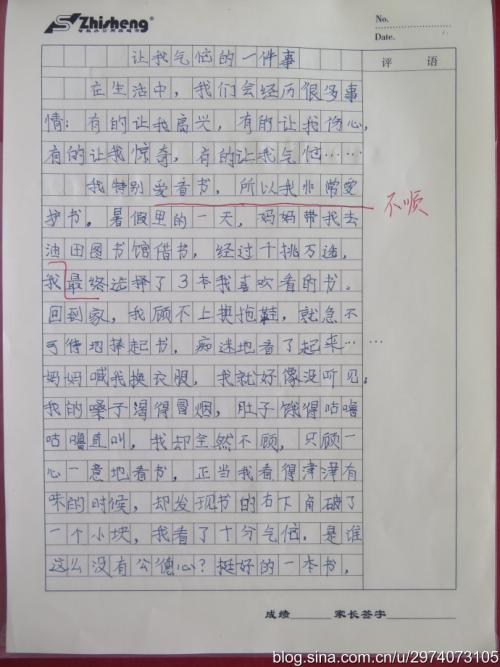 Zhisheng®
No.
Date.
评 语
让我气恼的一件事
在生活中，我们会经历很多事
情：有的让我高兴，有的让我伤心，
有的让我惊奇，有的让我气恼……
我特别爱看书，所以我非常爱
不顺
护书。暑假里的一天，妈妈带我去
油田图书馆借书，经过千挑万选，
我最终选择了3本我喜欢看的书。
回到家，我顾不上换拖鞋，就急不
可待地捧起书，痴迷地看了起来……
妈妈喊我换衣服，我就好像没听见，
我的嗓子渴得冒烟，肚子饿得咕噜
咕噜直叫，我却全然不顾，只顾一
心一意地看书，正当我看得津津有
味的时候，却发现书的右下角破了
一个小块，我看了十分气恼，是谁
这么没有公德心？挺好的一本书，
成绩 家长签字
blog.sina.com.cn/u/2974073105